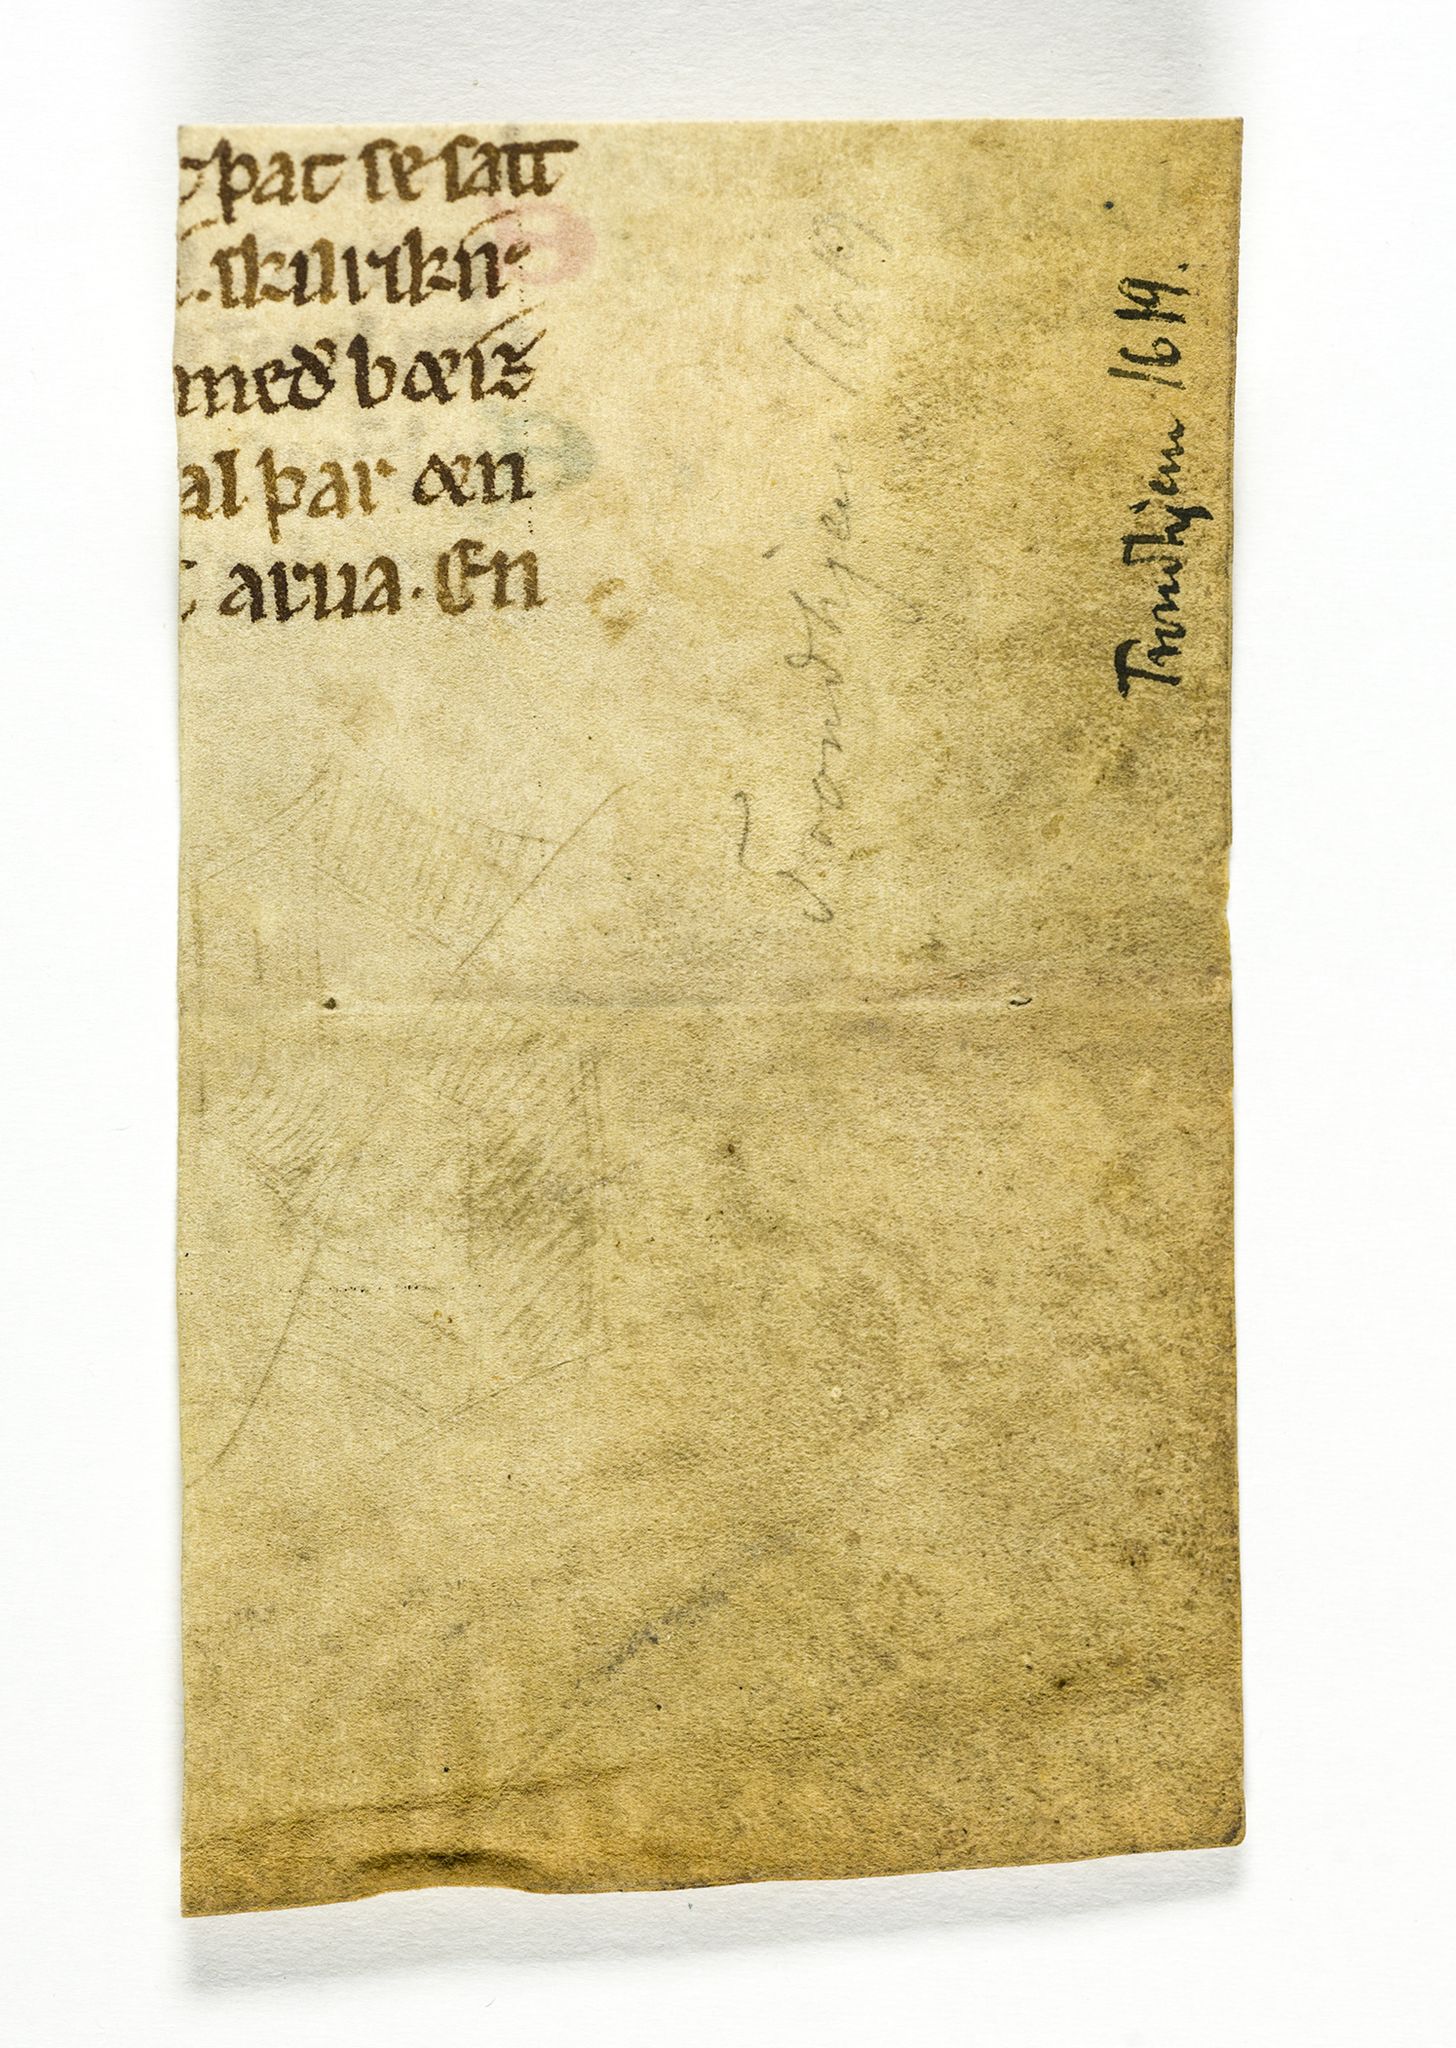 þat se satt
. skurikn
með bœiz
al þar æn
arua. En
Trondhjem 1619.
Trondhjem 1619